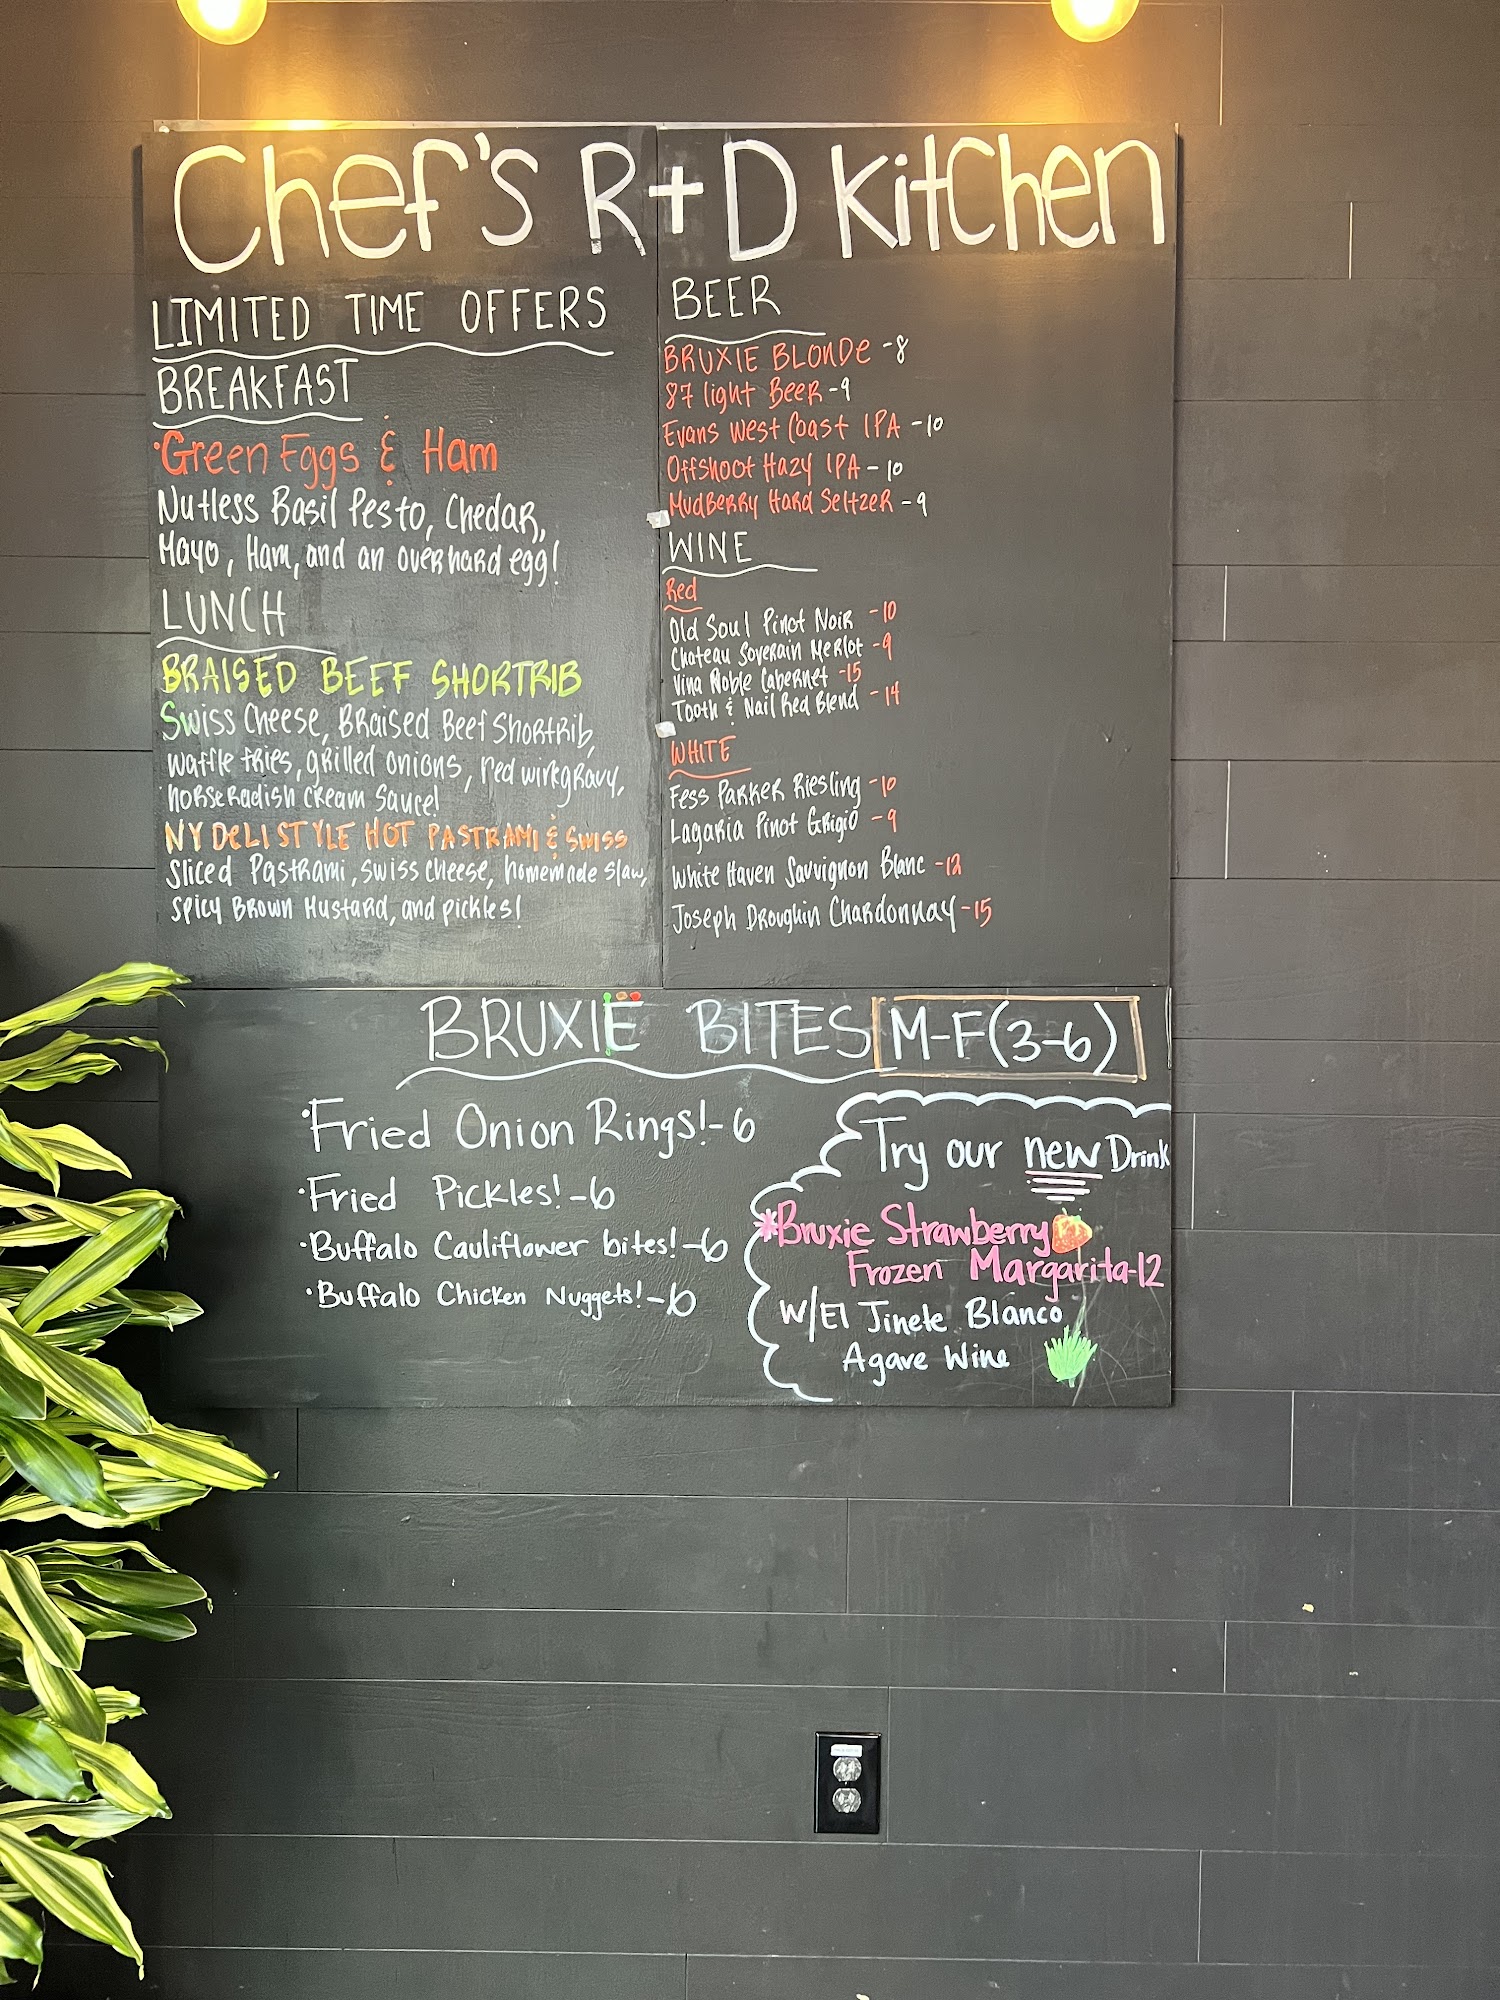 Chef's R+D Kitchen
LIMITED TIME OFFERS
BREAKFAST
·Green Eggs & Ham
Nutless Basil Pesto, Chedar,
Mayo, Ham, and an over hard egg!
LUNCH
BRAISED BEEF SHORTRIB
Swiss Cheese, Braised Beef Shortrib,
waffle fries, grilled onions, red wine gravy,
horseradish cream sauce!
NY DELI STYLE HOT PASTRAMI & SWISS
Sliced Pastrami, swiss cheese, homemade slaw,
spicy Brown Mustard, and pickles!
BEER
BRUXIE BLONDE -8
87 light Beer -9
Evans West Coast IPA -10
Offshoot Hazy IPA - 10
MudBerry Hard Seltzer -9
WINE
Red
Old Soul Pinot Noir -10
Chateau Soverain Merlot -9
Vina Noble Cabernet -15
Tooth & Nail Red Blend -14
WHITE
Fess Parker Riesling -10
Lagaria Pinot Grigio -9
White Haven Sauvignon Blanc -12
Joseph Droughin Chardonnay -15
BRUXIE BITES M-F(3-6)
·Fried Onion Rings!-6
·Fried Pickles!-6
·Buffalo Cauliflower bites!-6
·Buffalo Chicken Nuggets!-6
Try our new Drink
*Bruxie Strawberry
Frozen Margarita-12
W/El Jinete Blanco
Agave Wine